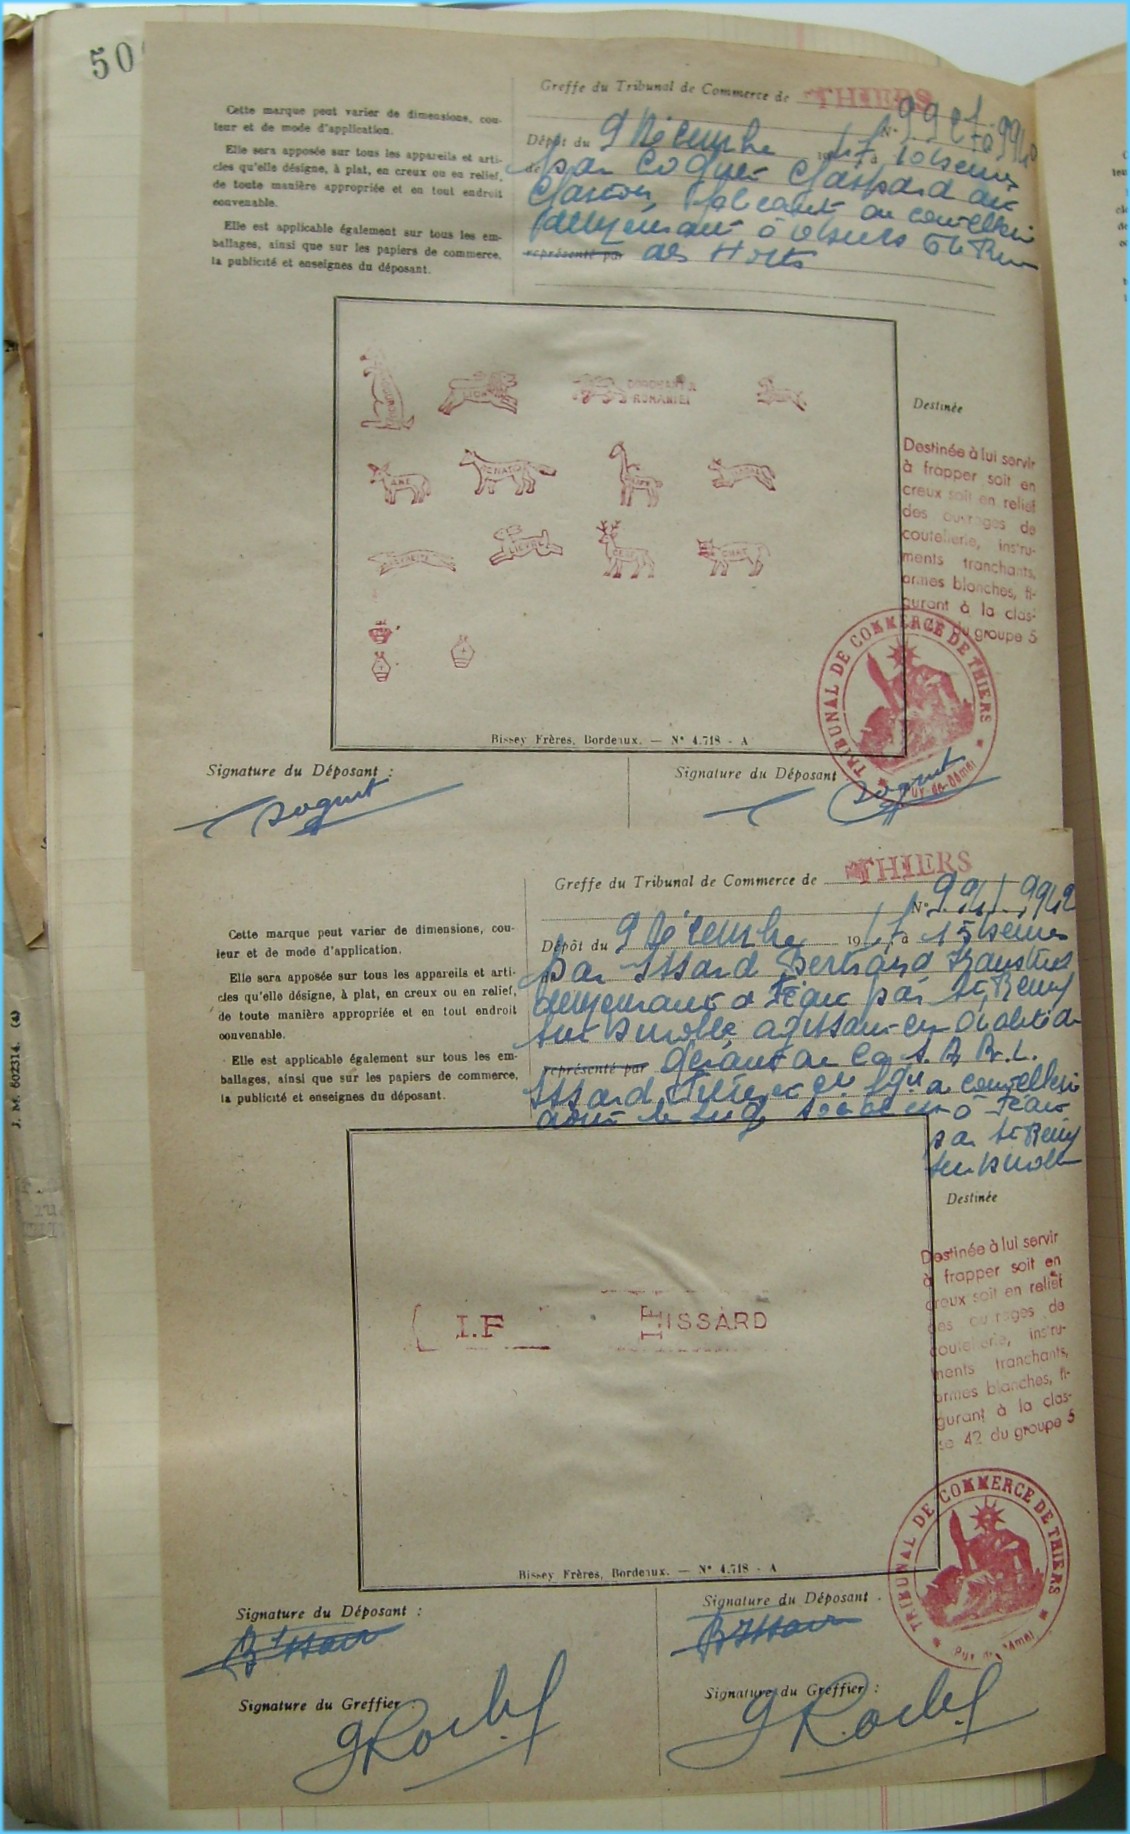 50
Greffe du Tribunal de Commerce de THIERS
Cette marque peut varier de dimensions, cou-
leur et de mode d'application.
Elle sera apposée sur tous les appareils et arti-
cles qu'elle désigne, à plat, en creux ou en relief,
de toute manière appropriée et en tout endroit
convenable.
Elle est applicable également sur tous les em-
ballages, ainsi que sur les papiers de commerce,
la publicité et enseignes du déposant.
N°
Dépôt du 9 Décembre 1947 à 10 heures
par Coquet Gaspard
demeurant à
représenté par des Horts
LION
ROMANIEI
ANE
LIEVRE
CERF
CHAT
Destinée
Destinée à lui servir
à frapper soit en
creux soit en relief
des ouvrages de
coutellerie, instru-
ments tranchants,
armes blanches, fi-
gurant à la clas-
du groupe 5
TRIBUNAL DE COMMERCE DE THIERS
Puy-de-Dôme
Bissey Frères, Bordeaux. — N° 4.718 - A
Signature du Déposant :
Signature du Déposant
Greffe du Tribunal de Commerce de THIERS
Cette marque peut varier de dimensions, cou-
leur et de mode d'application.
Elle sera apposée sur tous les appareils et arti-
cles qu'elle désigne, à plat, en creux ou en relief,
de toute manière appropriée et en tout endroit
convenable.
Elle est applicable également sur tous les em-
ballages, ainsi que sur les papiers de commerce,
la publicité et enseignes du déposant.
N° 9942
Dépôt du 9 Décembre 1947 à 15 heures
par Issard Bertrand
demeurant à par St Remy
sur Durolle agissant en qualité de
représenté par Gérant de la S.A.R.L.
Issard coutellerie
dont le siège
par St Remy
sur Durolle
Destinée
Destinée à lui servir
à frapper soit en
creux soit en relief
des ouvrages de
coutellerie, instru-
ments tranchants,
armes blanches, fi-
gurant à la clas-
se 42 du groupe 5
I.F
IF ISSARD
TRIBUNAL DE COMMERCE DE THIERS
Puy de Dôme
Bissey Frères, Bordeaux. — N° 4.718 - A
Signature du Déposant :
Signature du Déposant
Signature du Greffier
Signature du Greffier :
J. M. 602314. (4)